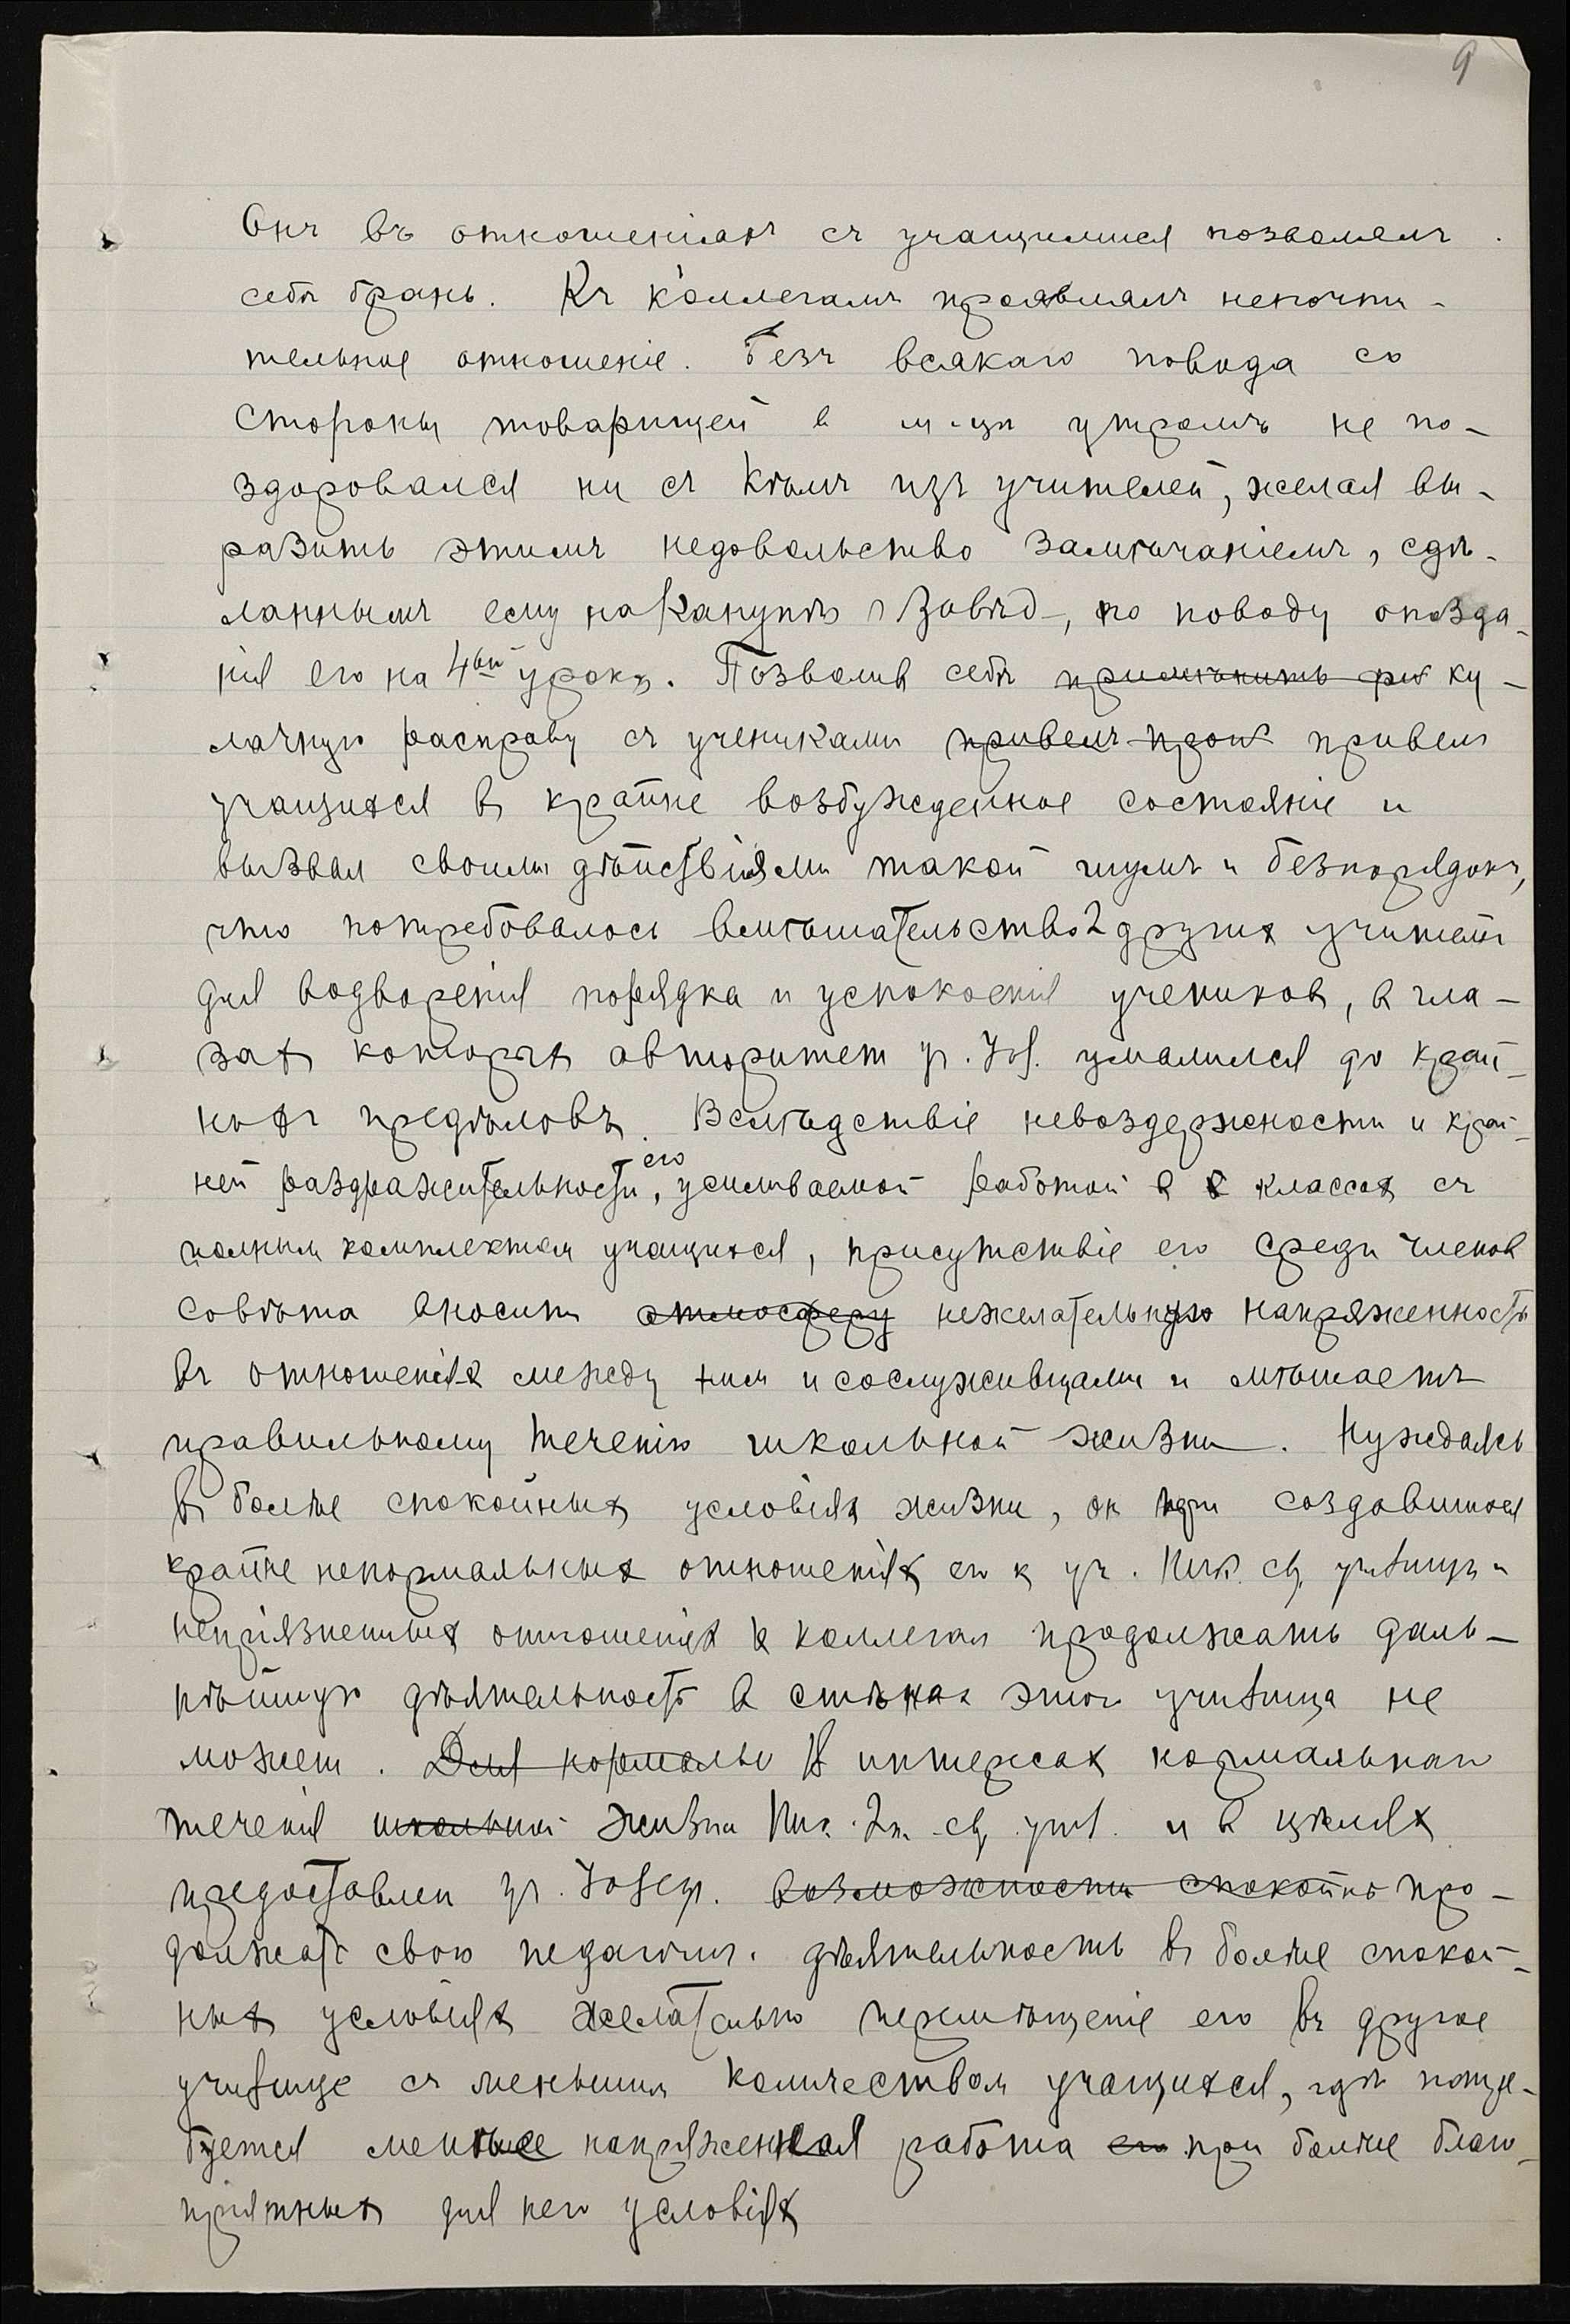 9
Онъ въ отношеніяхъ съ учащимися позволялъ
себѣ брань. Къ коллегамъ проявлялъ непочти-
тельное отношеніе. Безъ всякаго повода со
стороны товарищей в утромъ не по-
здоровался ни съ кѣмъ изъ учителей, желая вы-
разить этимъ недовольство замѣчаніемъ, сдѣ-
ланнымъ ему наканунѣ Завѣд, по поводу опозда-
нія его на 4ый урокъ. Позволив себѣ примѣнить ку-
лачную расправу съ учениками привелъ привелъ
учащихся въ крайне возбужденное состояніе и
вызвал своими дѣйствіями такой шумъ и безпорядокъ,
что потребовалось вмѣшательство 2 других учителей
для водворенія порядка и успокоенія учениковъ, в гла-
захъ которыхъ авторитет г. Іос. умалился до край-
нихъ предѣловъ. Вслѣдствіе невоздержности и край-
ней раздражительности его, усиливаемой работой в классах съ
полным комплектом учащихся, присутствіе его среди членов
совѣта вносит атмосферу нежелательную напряженность
въ отношенія между ним и сослуживцами и мѣшаетъ
правильному теченію школьной жизни. Нуждаясь
въ болѣе спокойныхъ условіях жизни, он при создавшихся
крайне ненормальных отношеніях его к уч. Ник. сц. училища и
непріязненных отношеніях к коллегам продолжать даль-
нѣйшую дѣятельность в стѣнах этого училища не
может. Для нормальн В интересах нормальнаго
теченія школьной жизни Ник. 2кл. сц. учил. и в цѣлях
предоставлен гр. Іосеф. возможности спокойно про-
должать свою педагогич. дѣятельность въ болѣе спокой-
ных условіях желательно перемѣщеніе его въ другое
училище съ меньшим количеством учащихся, гдѣ потре-
буется менѣе напряженная работа его при болѣе благо-
пріятныхъ для него условіях